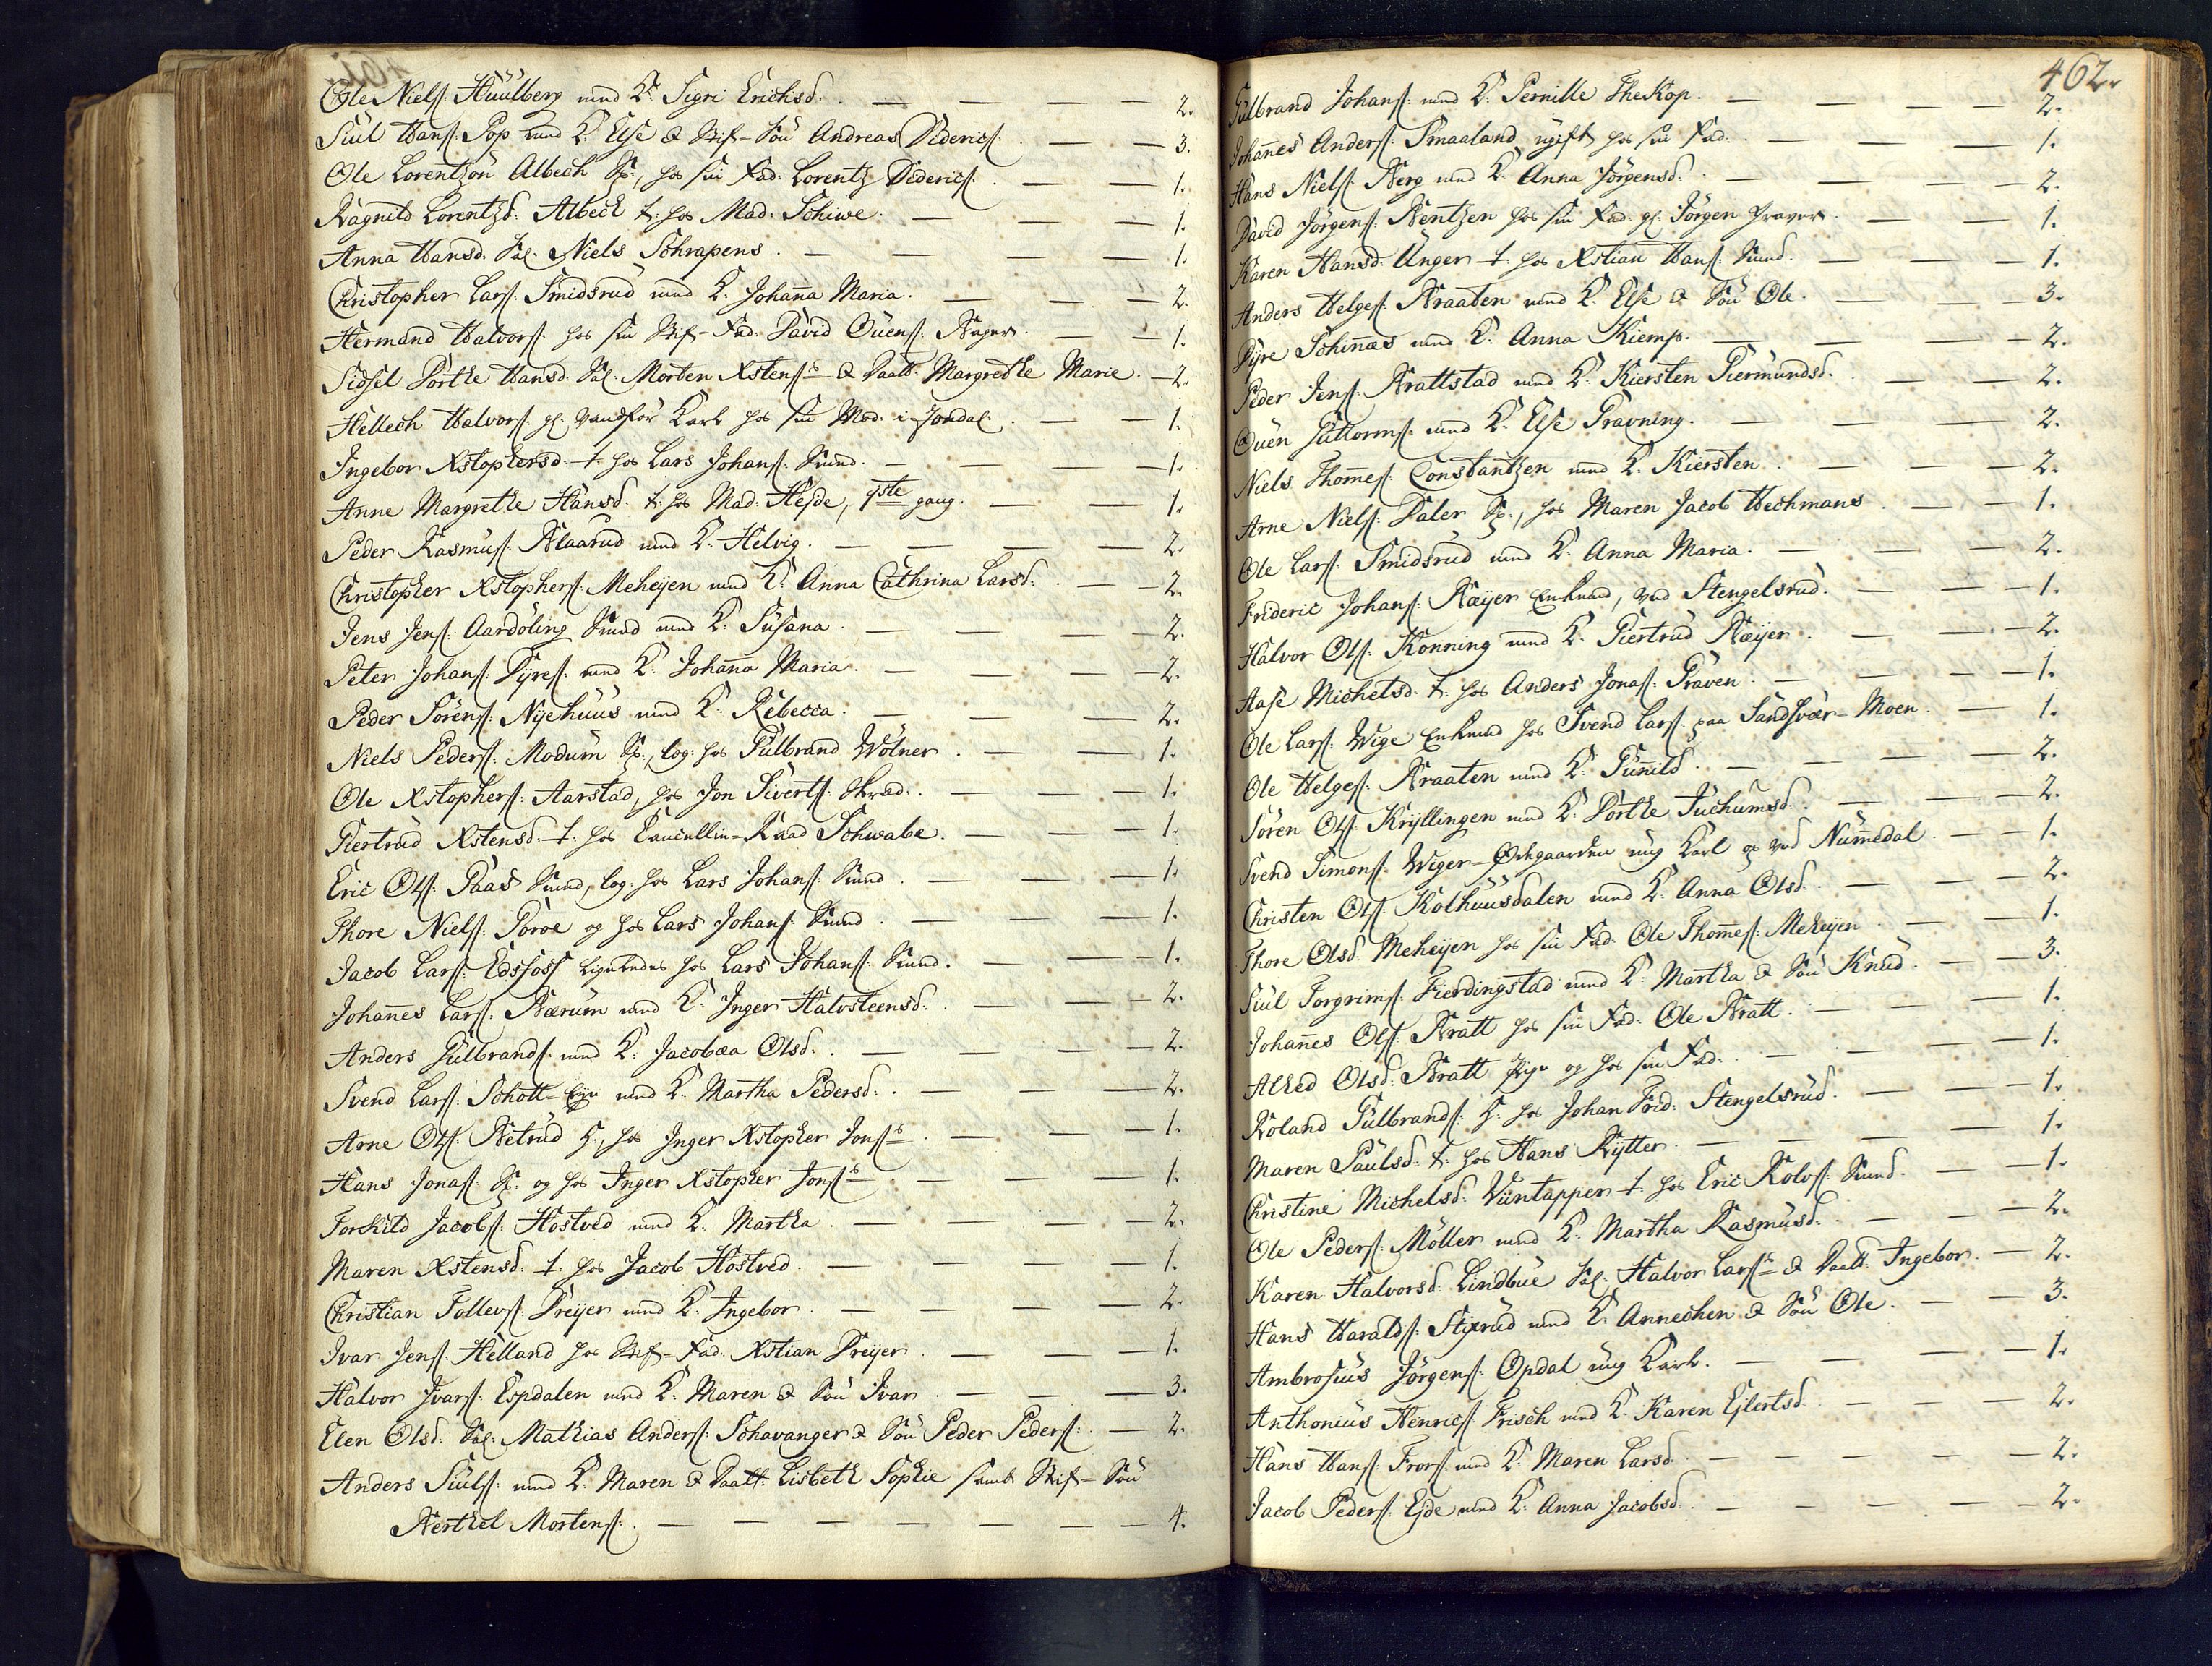 Ole Nielſ: Huulberg med K: Sigri Erichsd. — — — — 2.
Siul Hanſ: Pop med K: Else & Stif-Søn Andreas Didericſ: — — 3.
Ole Lorentzøn Albech Sk:, hos sin Fad: Lorentz Didericſ: — — 1.
Ragnild Lorentzd: Albeck t: hos Mad: Schiwe. — — — 1.
Anna Hansd. Sal. Niels Schrapens. — — — — 1.
Christopher Larſ: Smidsrud med K: Johanna Maria. — — — 2.
Hermand Halvorſ: hos sin Stif-Fad: David Ouenſ: Bager. — — 1.
Sidsel Dorthe Hansd. Sal. Morten Xstenſs & Daatt: Margrethe Marie. — 2.
Hellech Halvorſ: gl. vandfør Karl hos sin Mod. i Jondal. — — 1.
Ingebor Xstophersd. t: hos Lars Johanſ: Smed. — — — 1.
Anne Margrethe Hansd. t: hos Mad: Hejde, 1ste gang. — — 1.
Peder Rasmusſ: Blaarud med K: Helvig. — — — — 2.
Christopher Xstopherſ: Meheijen med K: Anna Cathrina Larsd: — — 2.
Jens Jenſ: Aardøling Smed med K: Susana. — — — 2.
Peter Johanſ: Dyreſ: med K: Johanna Maria. — — — 2.
Peder Sørenſ: Nijehuus med K: Rebecca. — — — 2.
Niels Pederſ: Modum Sk:, log: hos Gulbrand Wølner. — — 1.
Ole Xstopherſ: Aarstad, hos Jon Sivertſ: Skræd: — — — 1.
Giertrud Xstensd. t: hos Cancellie-Raad Schwabe. — — — 1.
Eric Olſ: Paas Smed, log: hos Lars Johanſ: Smed. — — — 1.
Thore Nielſ: Poroe og hos Lars Johanſ: Smed. — — — 1.
Jacob Larſ: Edsfoss ligeledes hos Lars Johanſ: Smed. — — 1.
Johannes Larſ: Bærum med K: Inger Halvsteensd: — — — 2.
Anders Gulbrandſ: med K: Jacobæa Olsd: — — — 2.
Svend Larſ: Schott-Eje med K: Martha Pedersd: — — — 2.
Arne Olſ: Betrud H:, hos Inger Xstopher Jonſs. — — — 1.
Hans Jonaſ: Sk: og hos Inger Xstopher Jonſs. — — — 1.
Torkild Jacobſ: Hostved med K: Martha. — — — 2.
Maren Xstensd. t: hos Jacob Hostved. — — — 1.
Christian Tollevſ: Dreijer med K: Ingebor. — — — 2.
Ivar Jenſ: Helland hos Stif-Fad: Xstian Dreijer. — — — 1.
Halvor Ivarſ: Espdalen med K: Maren & Søn Ivar. — — — 3.
Elen Olsd. Sal: Mathias Anderſ: Schavanger & Søn Peder Pederſ: — 2.
Anders Siulſ: med K: Maren & Daatt: Lisbeth Sophie samt Stif-Søn
Berthel Mortenſ: — — — — — — — 4.
462.
Gulbrand Johanſ: med K: Pernille Thekop. — — — 2.
Johannes Anderſ: Smaaland ugift hos sin Fad: — — — 1.
Hans Nielſ: Berg med K: Anna Jørgensd: — — — 2.
David Jørgenſ: Bentzen hos sin Fad: gl: Jørgen Graver. — — 1.
Karen Hansd: Unger t: hos Xstian Hanſ: Smed. — — 1.
Anders Helgeſ: Braaten med K: Else & Søn Ole. — — — 3.
Dyre Schinnæs med K: Anna Kiemp. — — — 2.
Peder Jenſ: Brattstad med K: Kiersten Giermundsd: — — 2.
Ouen Guttormſ: med K: Else Gravning. — — — 2.
Niels Thomeſ: Constantzen med K: Kiersten. — — — 2.
Arne Nielſ: Daler Sk:, hos Maren Jacob Hechmans — — 1.
Ole Larſ: Smidsrud med K: Anna Maria. — — — 2.
Frideric Johanſ: Bæijer Enkmd, ved Stengelsrud. — — 1.
Halvor Olſ: Konning med K: Giertrud Bæijer. — — 2.
Aase Michelsd. t: hos Anders Jonaſ: Graven. — — — 1.
Ole Larſ: Wige Enkmd hos Svend Larſ: paa Sandsvær-Moen. — 1.
Ole Helgeſ: Braaten med K: Gunild. — — — 2.
Søren Olſ: Kryllingen med K: Dorthe Juchumsd: — — 2.
Svend Simonſ: Wiger-Ødegaarden ung Karl og ved Nummedal. — 1.
Christen Olſ: Kolhuusdalen med K: Anna Olsd. — — 2.
Thore Olsd. Meheijen hos sin Fad: Ole Thomeſ: Meheijen. — 1.
Siul Torgrimſ: Fierdingstad med K: Martha & Søn Knud. — 3.
Johannes Olſ: Bratt hos sin Fad: Ole Bratt. — — 1.
Alhed Olsd: Bratt Pige og hos sin Fad: — — — 1.
Roland Gulbrandſ: H: hos Johan Frid: Stengelsrud. — — 1.
Maren Paulsd: t: hos Hans Rytter. — — — 1.
Christine Michelsd: Viintapper t: hos Eric Rolvſ: Smed. — 1.
Ole Pederſ: Møller med K: Martha Rasmusd: — — 2.
Karen Halvorsd: Lindbue Sal: Halvor Larſs & Daatt: Ingebor. — 2.
Hans Haraldſ: Stixrud med K: Annechen & Søn Ole. — — 3.
Ambrosius Jørgenſ: Opdal ung Karl. — — — 1.
Anthonius Henricſ: Frisch med K: Karen Ejlertsd. — — — 2.
Hans Hanſ: Frorſ: med K: Maren Larsd. — — — 2.
Jacob Pederſ: Ejde med K: Anna Jacobsd. — — — 2.